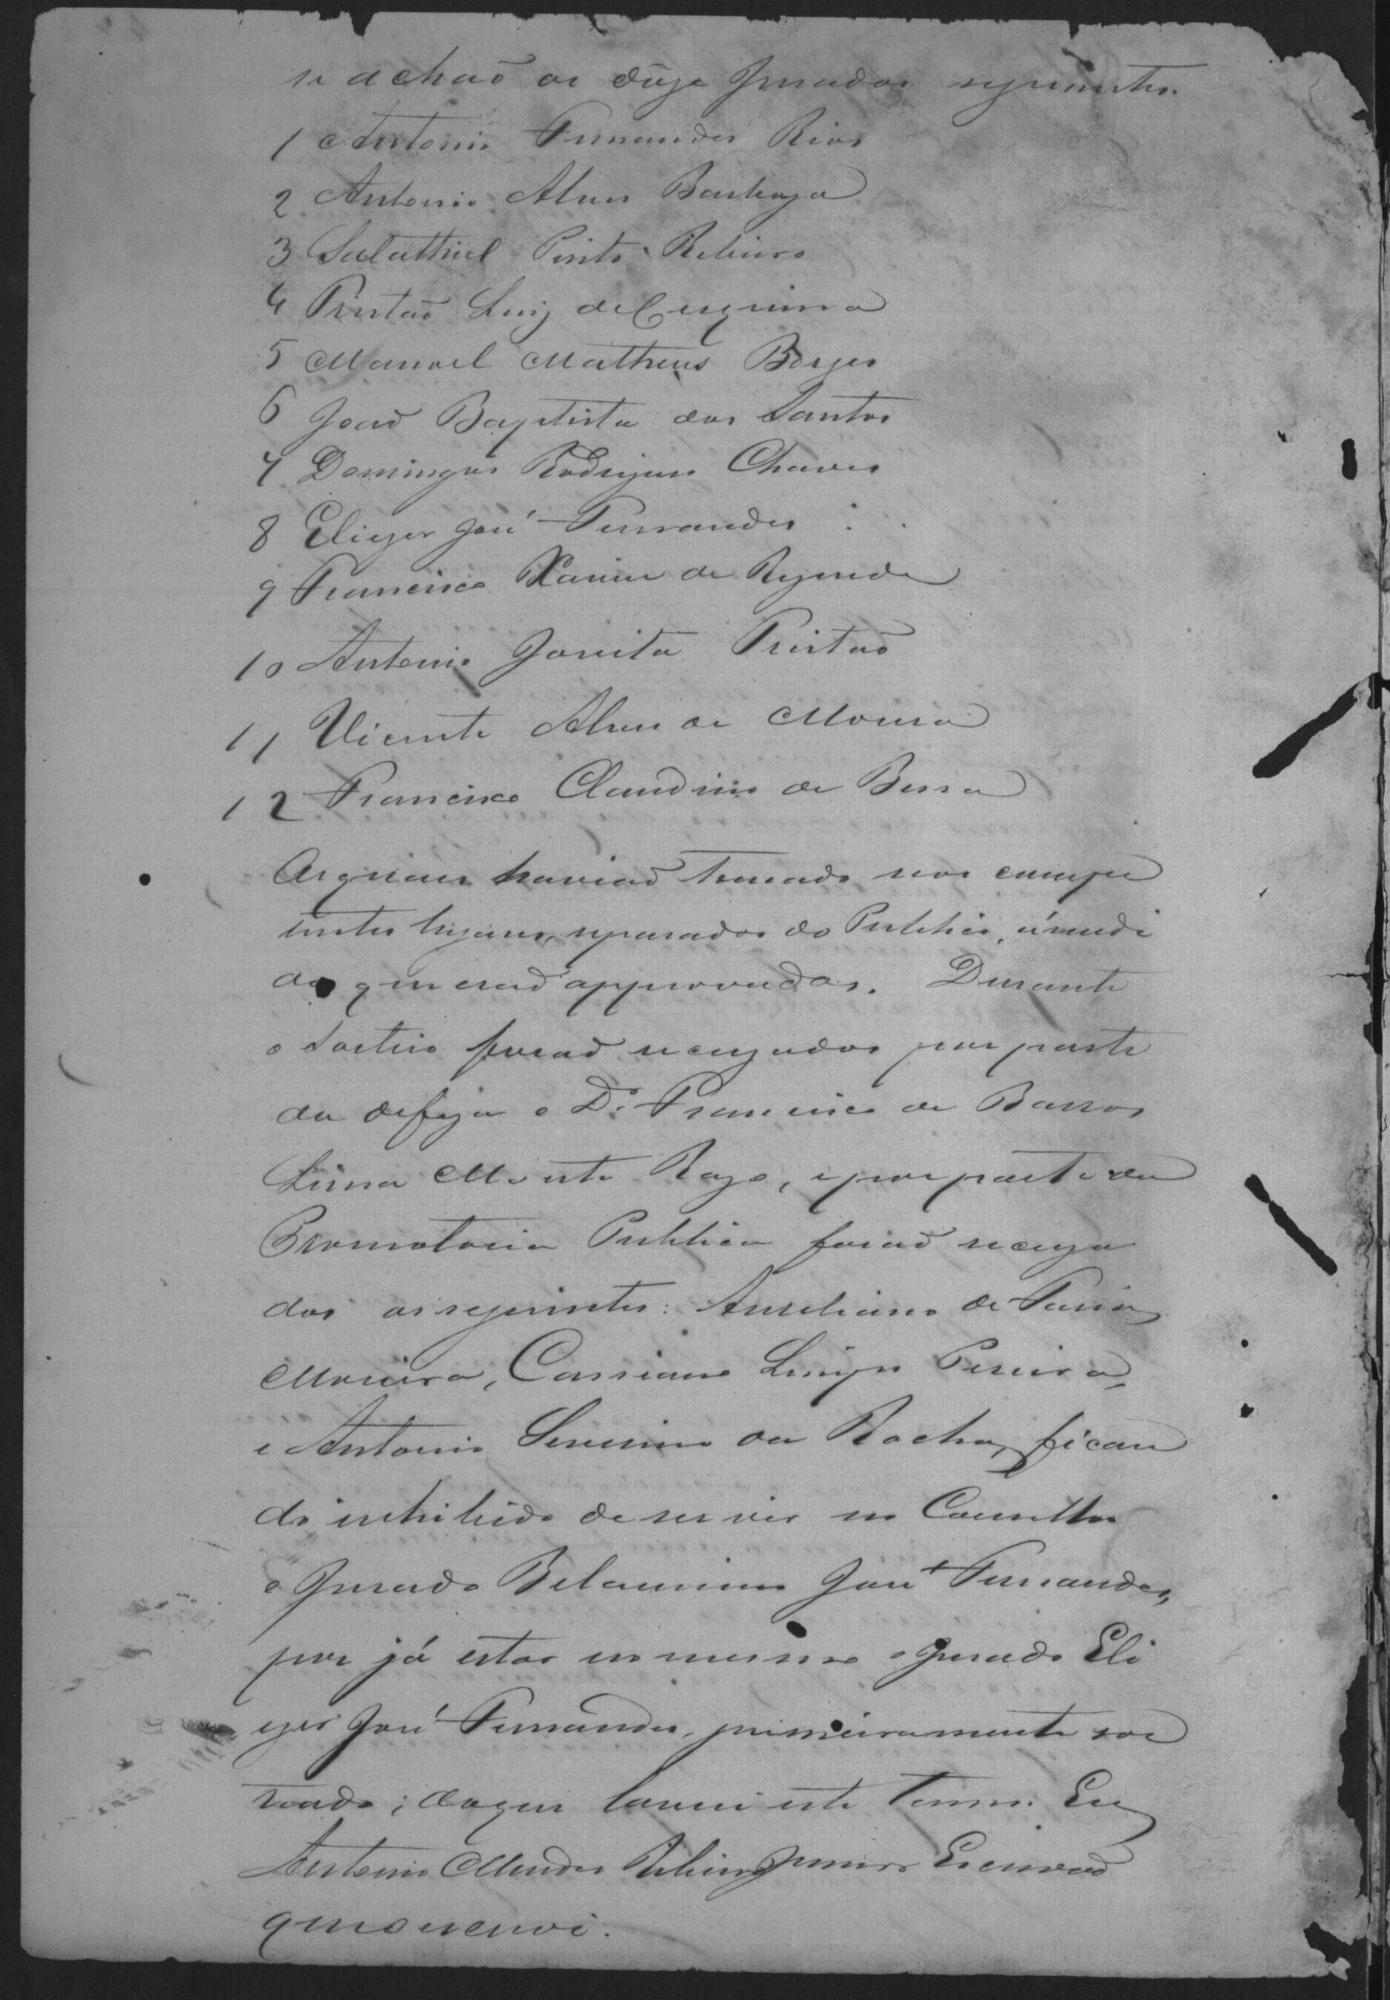 se achaõ os doze Jurados seguintes.
1 Antonio Fernandes Rios
2 Antonio Alves Barbosa
3 Salathiel Pinto Ribeiro
4 Tristaõ Luiz de Cerqueira
5 Manoel Matheus Borges
6 Joaõ Baptista dos Santos
7 Domingos Rodrigues Chaves
8 Eliezer José Fernandes
9 Francisco Xavier de Rezende
10 Antonio Jovita Tristaõ
11 Vicente Alves de Moura
12 Francisco Claudino de Bessa
Os quaes haviaõ tomado nos compe
tentes lugares, separados do Publico, á medi
da que eraõ approvados. Durante
o sorteio foraõ recuzados por parte
da defeza o Dr. Francisco de Barros
Lima Monte Razo, e por parte da
Promotoria Publica foraõ recuza
dos os seguintes: Aureliano de Faria
Moreira, Cassiano Luiz Pereira,
e Antonio Severino da Rocha, fican
do inhibido de servir no Conselho
o Jurado Belarmino José Fernandes,
por já estar no mesmo o Jurado Eli
ezer José Fernandes, primeiramente sor
teado; do que lavrei este termo. Eu
Antonio Mendes Ribeiro Junior Escrivaõ
que o escrevi.